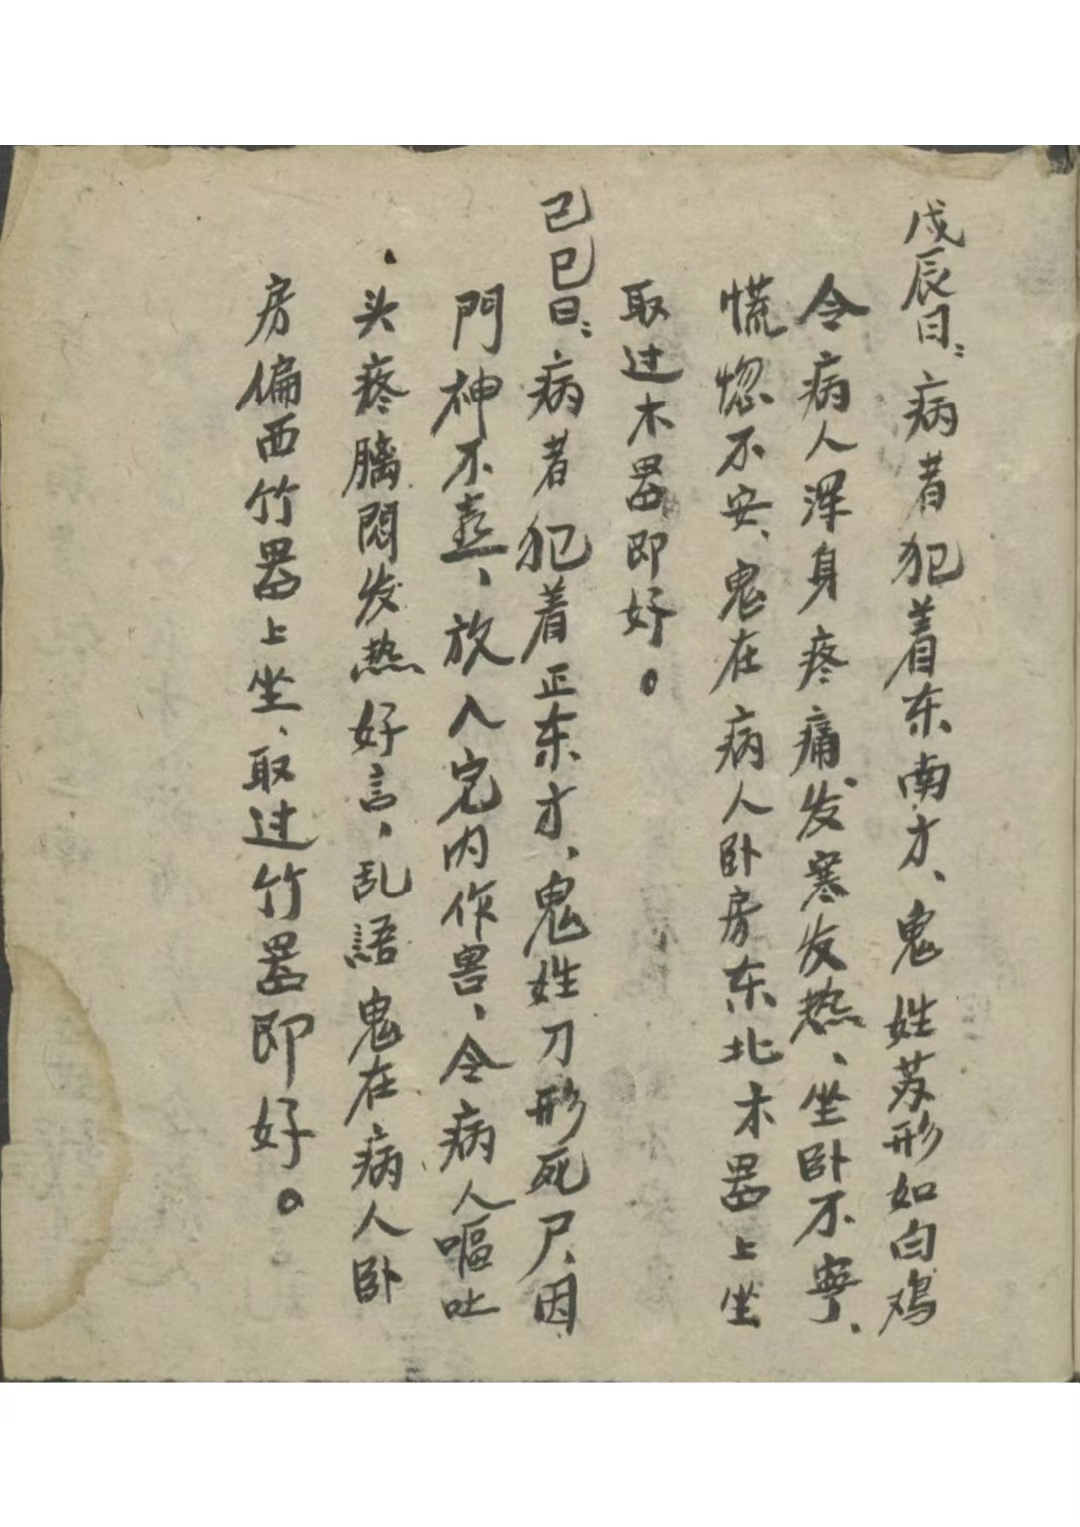 戊辰日：病者犯着东南方、鬼姓苏形如白鸡
令病人浑身疼痛、发寒发热、坐卧不寧、
慌惚不安、鬼在病人卧房东北木器上坐
取过木器即好。
己巳日：病者犯着正东方、鬼姓刀形死尸、因
門神不、放入宅内作害、令病人嘔吐
头疼脑悶发热好言，乱語鬼在病人卧
房偏西竹器上坐、取过竹器即好。